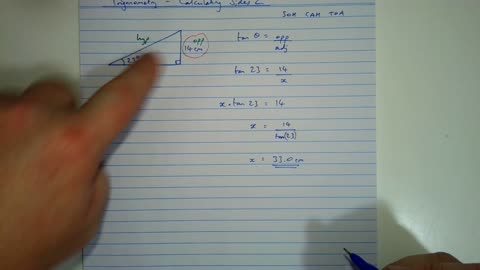 Trigonometry - Calculating Sides 2
SOH CAH TOA
hyp
opp
14cm
23°
tan θ = opp
adj
tan 23 = 14
x
x × tan 23 = 14
x = 14
tan(23)
x = 33.0cm